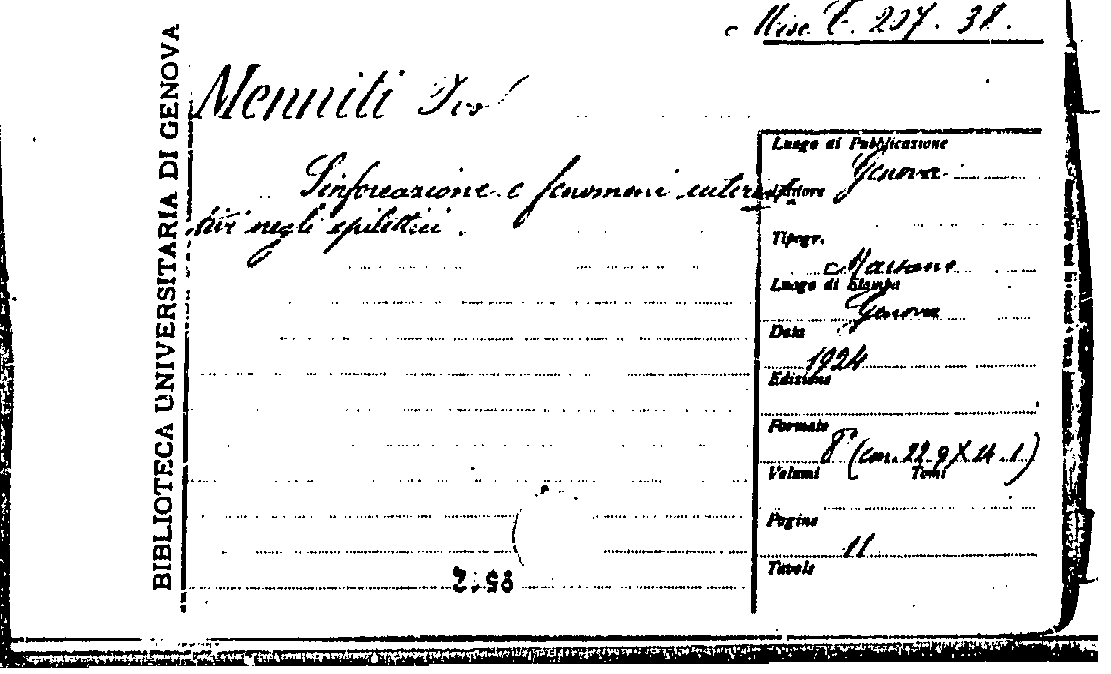 Misc. E. 207. 38.
BIBLIOTECA UNIVERSITARIA DI GENOVA
Menniti
e fenomeni
tivi negli epilettici.
Luogo di Pubblicazione
Genova
Editore
Tipogr.
Marsano
Luogo di Stampa
Genova
Data
1924
Edizione
Formato
8° (cm. 22.9 X 14.1)
Volumi Tomi
Pagine
11
Tavole